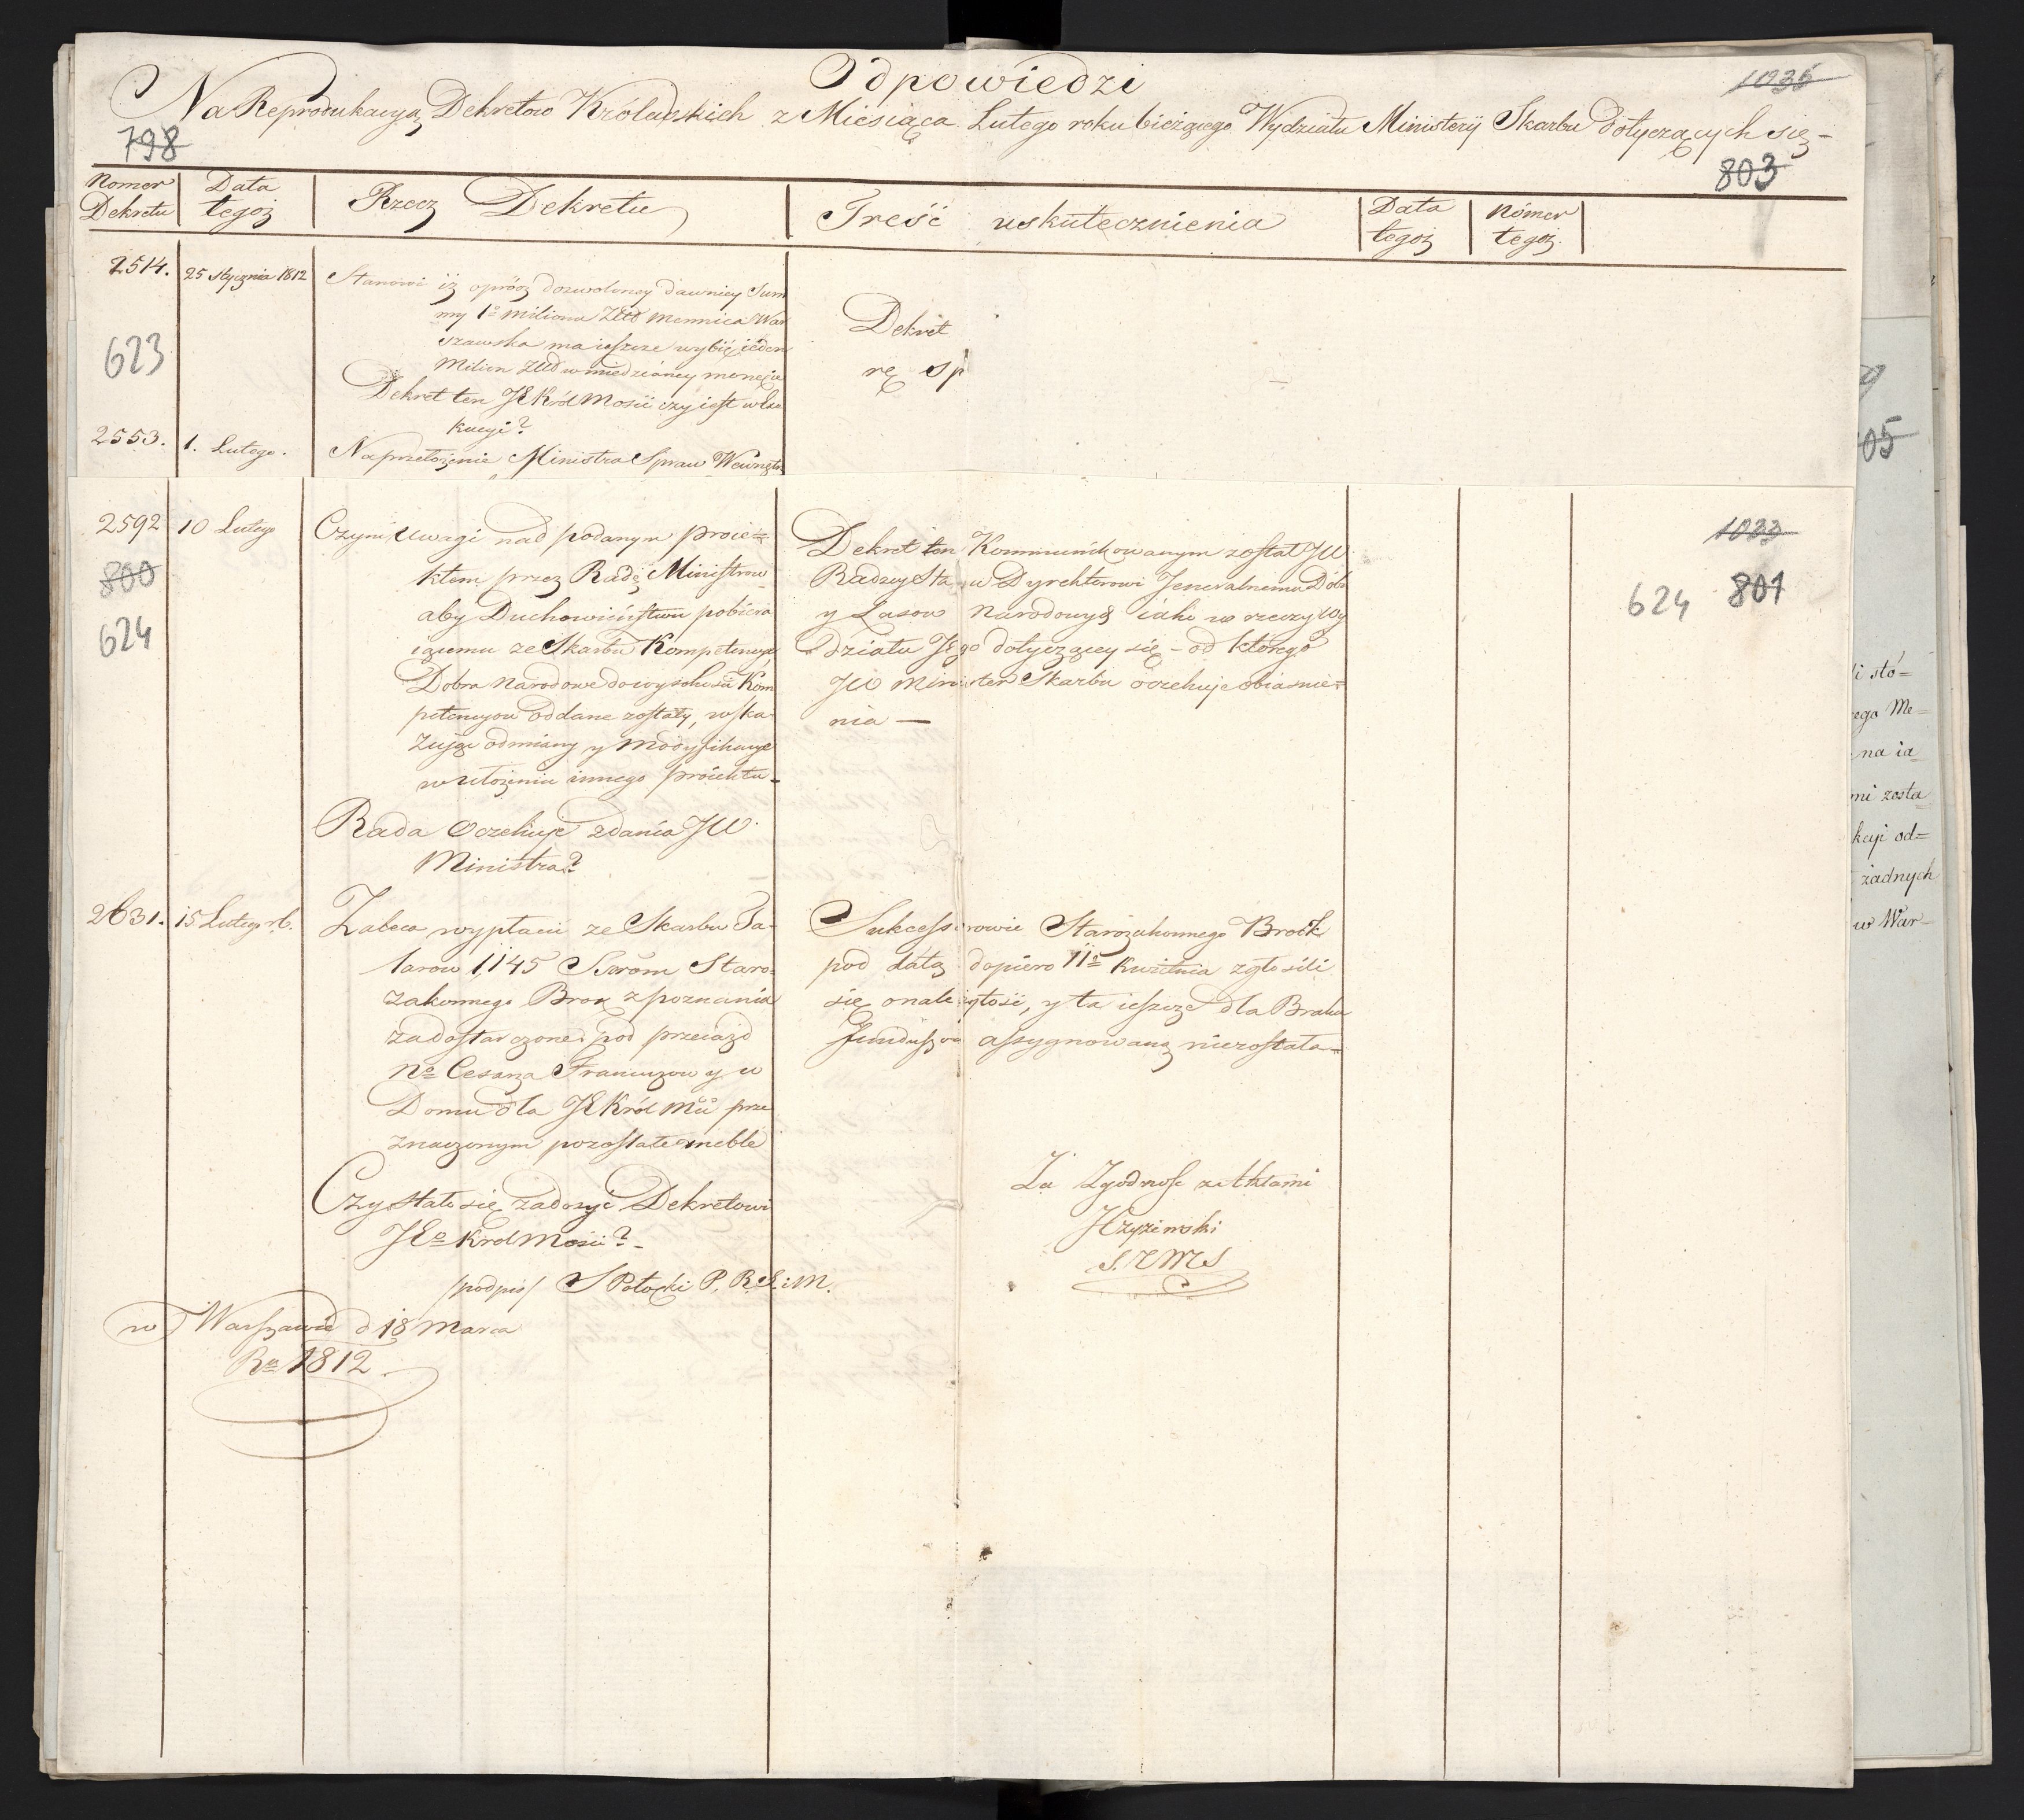 Odpowiedzi
1036
Na Reprodukcyą Dekretow Królewskich z Miesiąca Lutego roku bieżącego Wydziału Ministeryi Skarbu dotyczących się –
798
803
Nomer Dekretu
Data tegoż
Rzecz Dekretu
Treść uskutecznienia
Data tegoż
Nómer tegoż.
2514.
25 stycznia 1812
Stanowi iż oprócz dozwoloney dawniey Sum
my 1o miliona Złłd mennica War
szawska ma ieszcze wybić ieden
Milion Złłd w miedzianey monecie
Dekret ten JE Król Mości czy iest w Exe
kucyi?
623
Dekret
rę sp
2553.
1. Lutego.
Na przełożenie Ministra Spraw Wewnętrz
2592
10 Lutego
800
624
Czyni Uwagi nad podanym proie=
ktem przez Radę Ministrow
aby Duchowieństwu pobiera
iącemu ze Skarbu Kompetencye
Dobra Narodowe do wysokości Kom
petencyow oddane zostały, wska
zuiąc odmiany y modyfikacye
w ułożeniu innego proiektu –
Rada oczekuje zdania JW.
Ministra?
Dekret ten Kommunikowanym został JW
Radzcy Sta u Dyrektorowi Jeneralnemu Dóbr
y Lasow Narodowych iako w rzeczy Wy
działu Jego dotyczącey się – od którego
JW Minister Skarbu oczekuje obiaśnie=
nia —
1033
624 801
2631.
15 Lutego rb.
Zaleca wypłacić ze Skarbu Ta-
larow 1,145 Ssrom Staro-
zakonnego Brok z poznania
za dostarczone pod przeiazd
No Cesarza Francuzow y w
Domu dla JE Król Mci prze
znaczonym pozostałe meble
Czy stało się zadosyc Dekretowi
JEo Król Mości? –
Sukcessorowie Starozakonnego Brock
pod datą dopiero 11o Kwietnia zgłosili
się o należytość, y ta ieszcze dla Braku
funduszow assygnowaną niezostała –
Za Zgodność z Aktami
/podpis/ S Potocki P. R. S. i M.
w Warszawie d 18 Marca
Ro 1812
05
i stó=
rego Me=
na ia
mi zosta
kcyi od=
żadnych
w War=